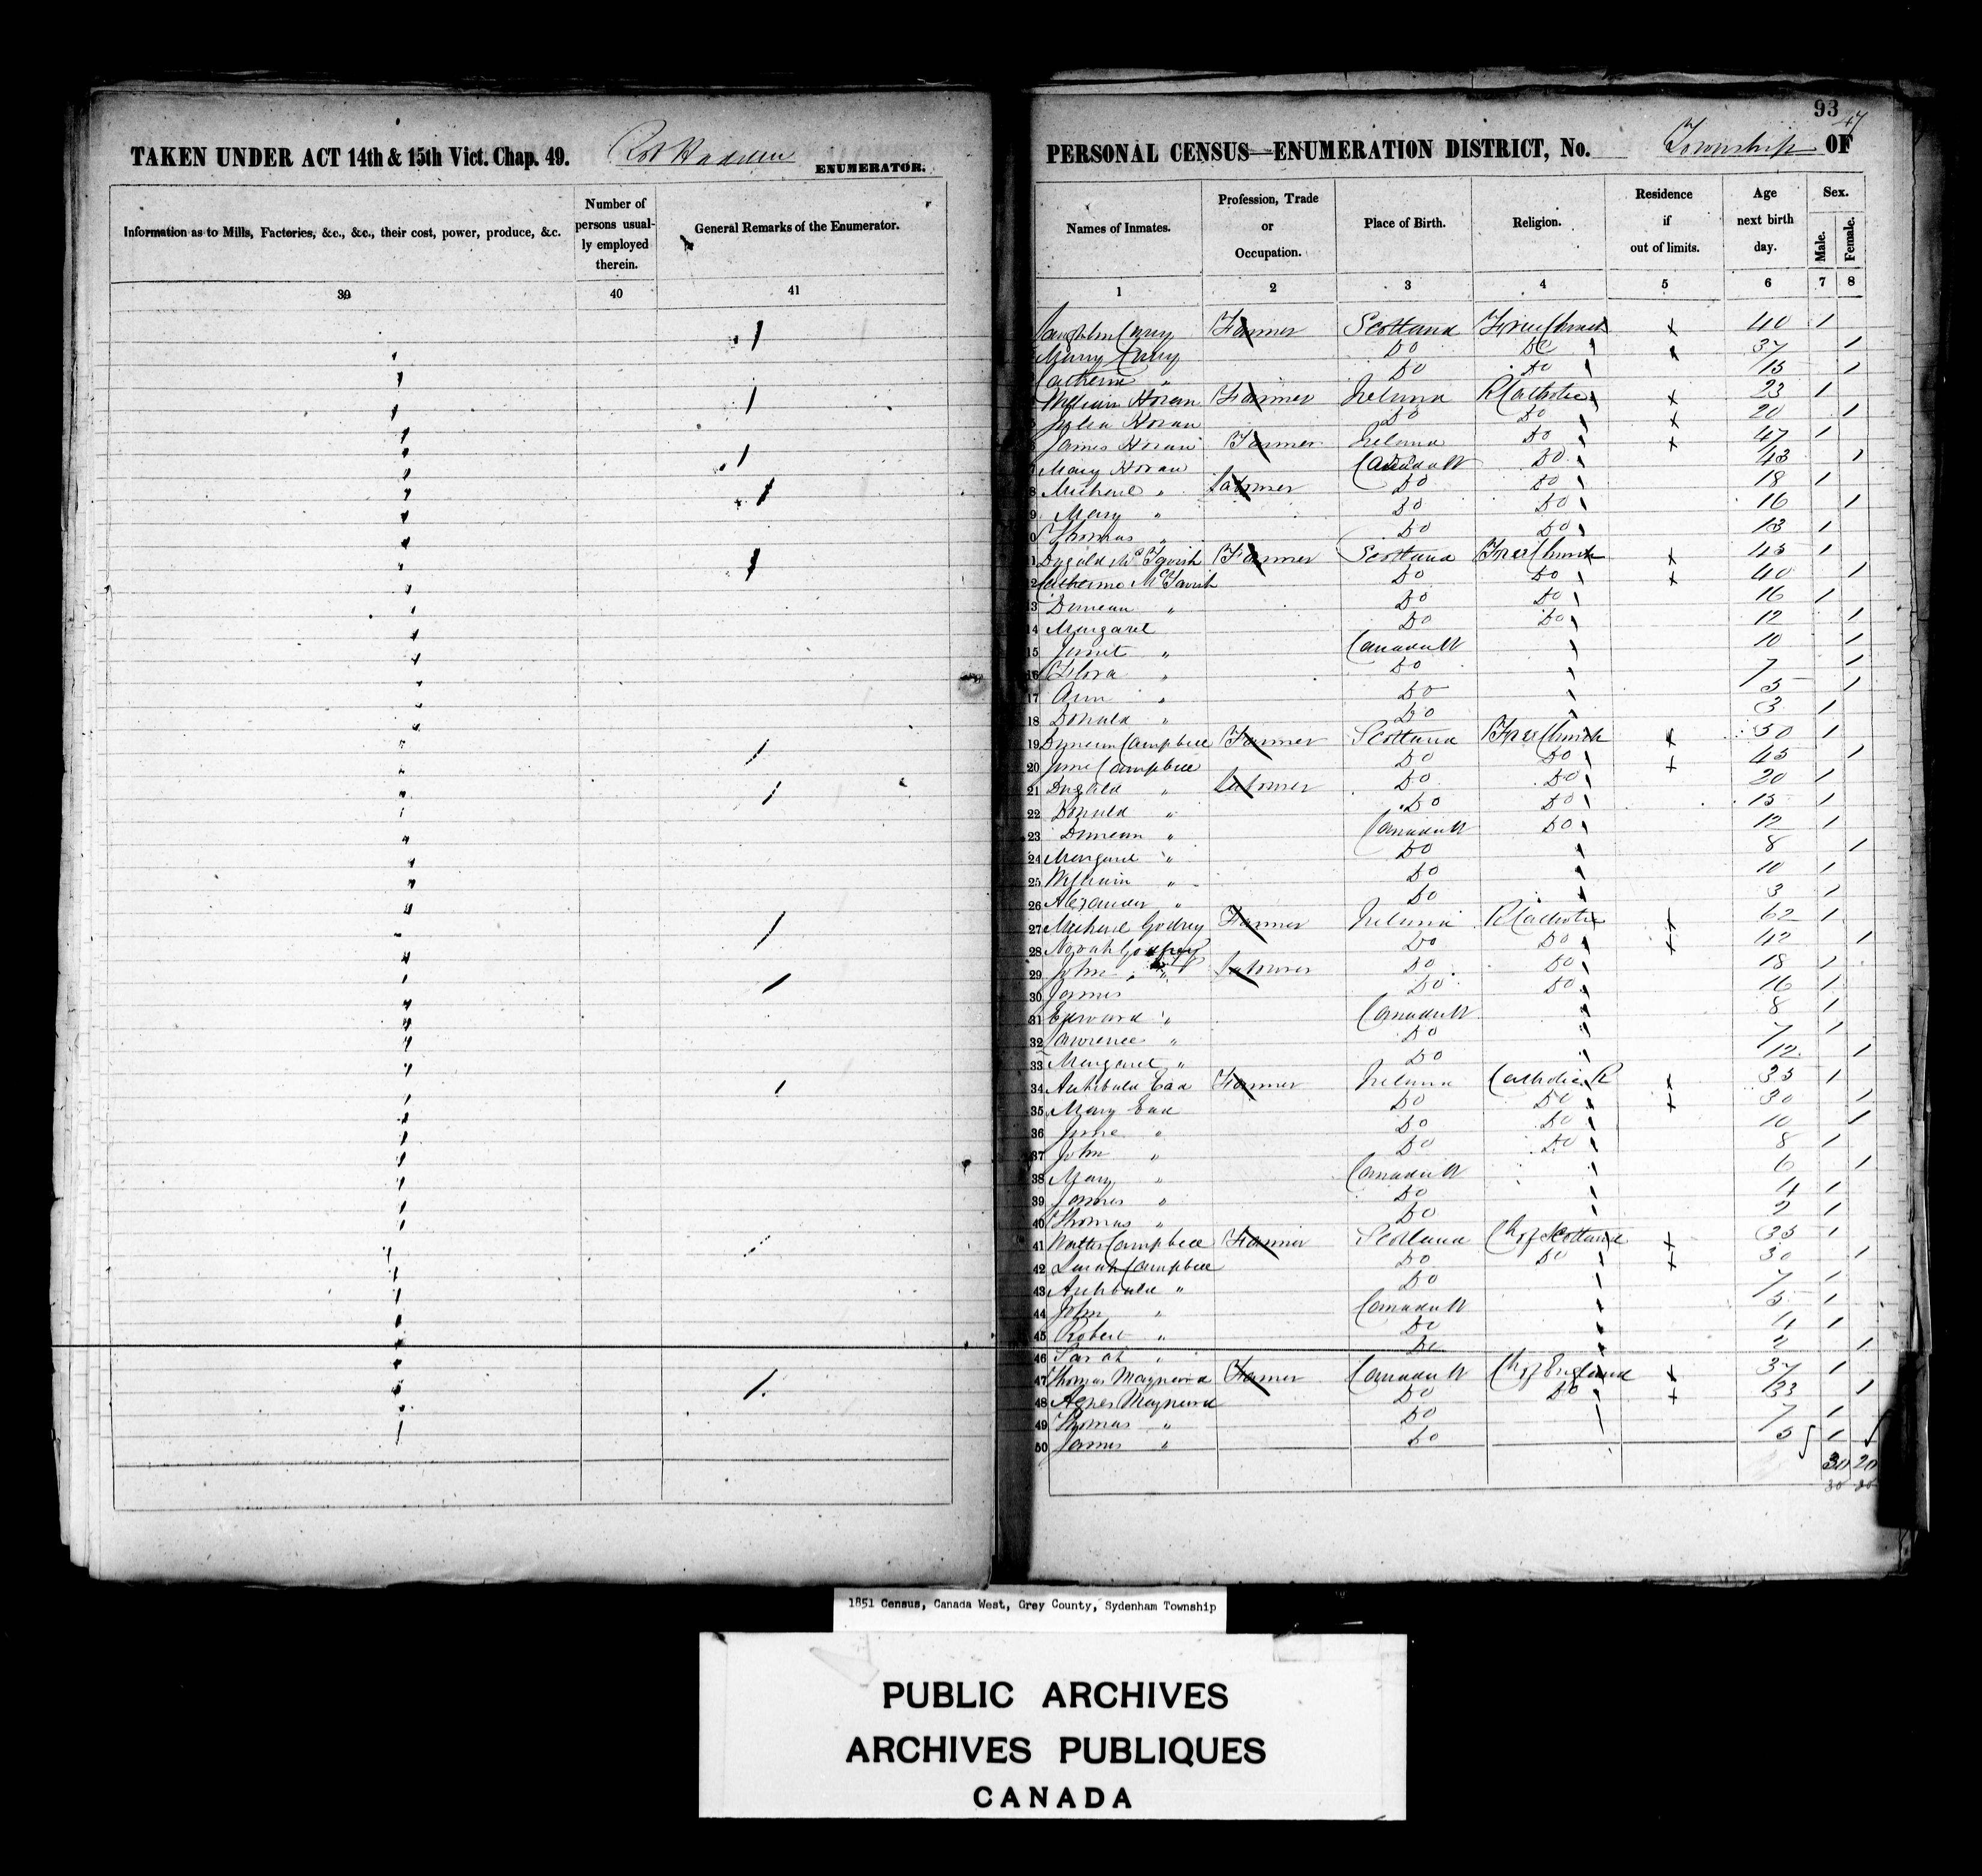 TAKEN UNDER ACT 14th & 15th Vict. Chap. 49. ENUMERATOR.
Information as to Mills, Factories, &c., &c., their cost, power, produce, &c.
Number of persons usually employed therein.
General Remarks of the Enumerator.
39 40 41
93
47
PERSONAL CENSUS—ENUMERATION DISTRICT, No. Township OF
Names of Inmates.
Profession, Trade or Occupation.
Place of Birth.
Religion.
Residence if out of limits.
Age next birth day.
Sex.
Male. Female.
1 2 3 4 5 6 7 8
Farmer Scotland Free Church x 40 1
Do Do x 37 1
Catherine " Do Do 15 1
William Horan Farmer Ireland R Catholic x 23 1
Julia Horan Do Do x 20 1
James Horan Farmer Ireland Do x 47 1
7 Mary Horan Canada W Do 43 1
8 Michael " Labourer Do Do 18 1
9 Mary " Do Do 16 1
Thomas " Do Do 13 1
Dugald McTavish Farmer Scotland Free Church x 45 1
12 Catherine McTavish Do Do x 40 1
13 Duncan " Do Do 16 1
14 Margaret Do Do 12 1
15 Jennet " Canada W 10 1
16 Flora " Do 7 1
17 Ann " Do 5 1
18 Donald " Do 3 1
19 Duncan Campbell Farmer Scotland Free Church x 50 1
20 Jane Campbell Do Do x 45 1
21 Dugald " Labourer Do Do 20 1
22 Donald " Do Do 15 1
23 Duncan " Canada W Do 12 1
24 Margaret " Do 8 1
25 William " Do 10 1
26 Alexander " Do 3 1
27 Michael Godfrey Farmer Ireland R Catholic x 62 1
28 Norah Godfrey Do Do x 42 1
29 John " Labourer Do Do 18 1
30 James Do Do 16 1
31 Edward " Canada W 8 1
32 Lawrence " Do 7 1
33 Margaret " Do 12 1
34 Archibald Farmer Ireland Catholic R x 35 1
35 Mary Do Do x 30 1
36 Jane " Do Do 10 1
37 John " Do Do 8 1
38 Mary " Canada W 6 1
39 James " Do 4 1
40 Thomas " Do 2 1
41 Walter Campbell Farmer Scotland Ch of Scotland x 35 1
42 Sarah Campbell Do Do x 30 1
43 Archibald " Do 7 1
44 John " Canada W 5 1
45 Robert " Do 4 1
46 Sarah " Do 2 1
47 Thomas Maynard Farmer Canada W Ch of England x 37 1
48 Agnes Maynard Do Do x 33 1
49 Thomas " Do 7 1
50 James " Do 5 1
30 20
30 20
1851 Census, Canada West, Grey County, Sydenham Township
PUBLIC ARCHIVES
ARCHIVES PUBLIQUES
CANADA